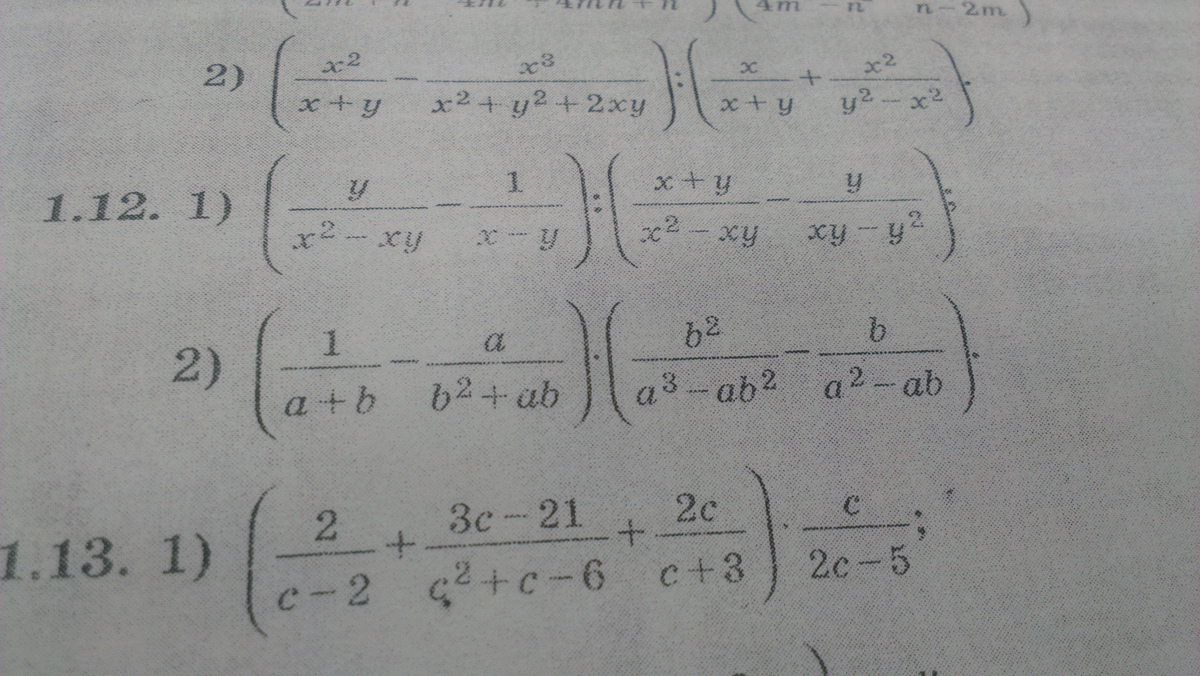 2) (x²/(x + y) − x³/(x² + y² + 2xy)) : (x/(x + y) + x²/(y² − x²)).
1.12. 1) (y/(x² − xy) − 1/(x − y)) : ((x + y)/(x² − xy) − y/(xy − y²));
2) (1/(a + b) − a/(b² + ab)) · (b²/(a³ − ab²) − b/(a² − ab)).
1.13. 1) (2/(c − 2) + (3c − 21)/(c² + c − 6) + 2c/(c + 3)) · c/(2c − 5);